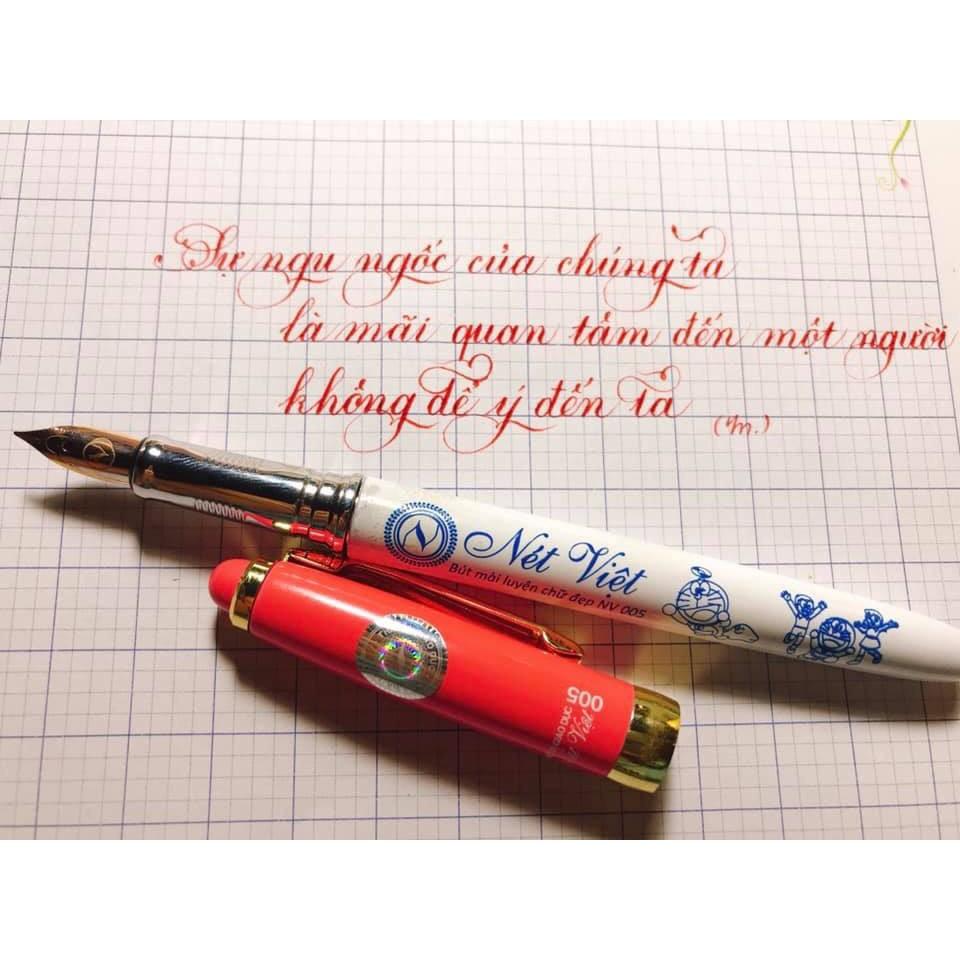 Sự ngu ngốc của chúng ta
là mãi quan tâm đến một người
không để ý đến ta
("m.)
Nét Việt
Bút mài luyện chữ đẹp NV 005
005
GIÁO DỤC
Việt